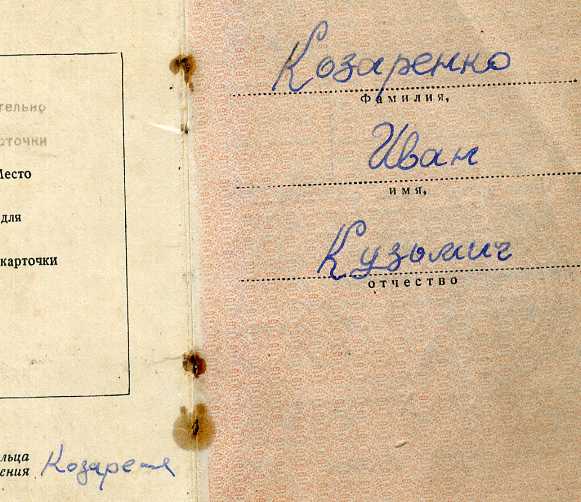 тельно
рточки
Место
для
карточки
льца
ения
Козаренко
фамилия,
Иван
имя,
Кузьмич
отчество